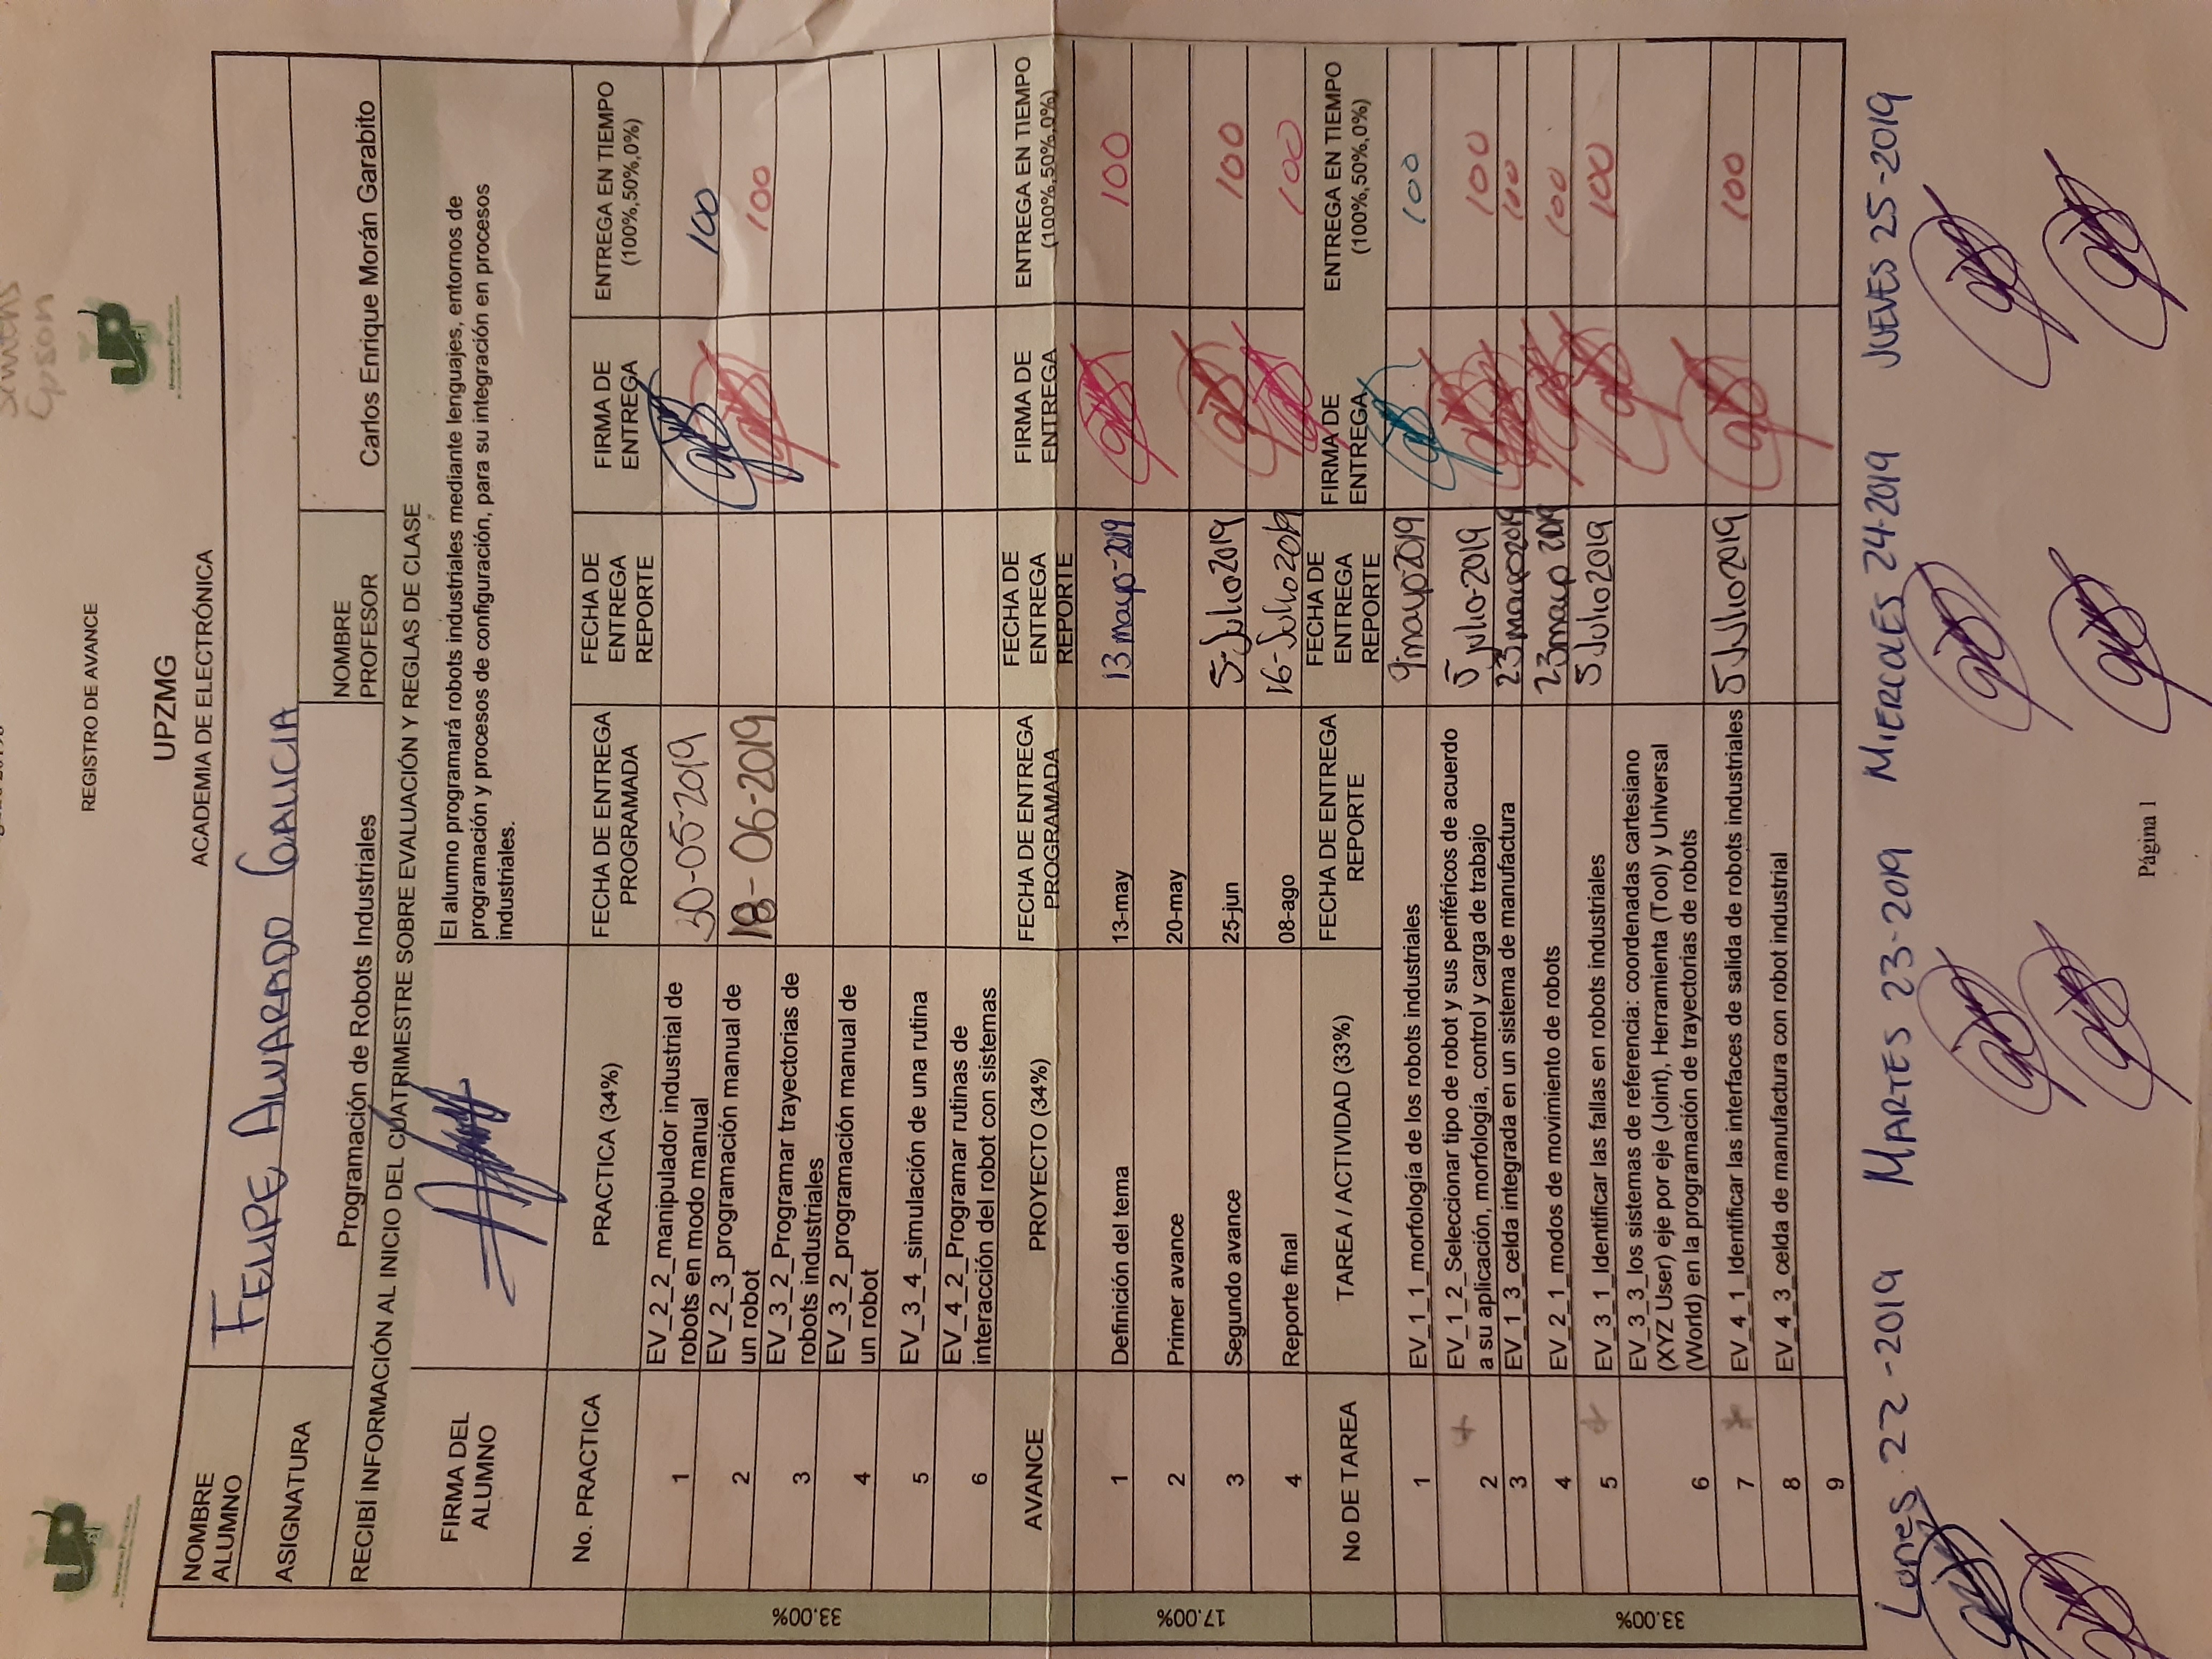 Epson
REGISTRO DE AVANCE
UPZMG
ACADEMIA DE ELECTRÓNICA
NOMBRE ALUMNO
FELIPE ALVARADO GALICIA
ASIGNATURA
Programación de Robots Industriales
NOMBRE PROFESOR
Carlos Enrique Morán Garabito
RECIBÍ INFORMACIÓN AL INICIO DEL CUATRIMESTRE SOBRE EVALUACIÓN Y REGLAS DE CLASE
FIRMA DEL ALUMNO
El alumno programará robots industriales mediante lenguajes, entornos de
programación y procesos de configuración, para su integración en procesos
industriales.
No. PRACTICA PRACTICA (34%) FECHA DE ENTREGA PROGRAMADA FECHA DE ENTREGA REPORTE FIRMA DE ENTREGA ENTREGA EN TIEMPO (100%,50%,0%)
33.00%
1 EV_2_2_manipulador industrial de robots en modo manual 30-05-2019 100
2 EV_2_3_programación manual de un robot 18-06-2019 100
3 EV_3_2_Programar trayectorias de robots industriales
4 EV_3_2_programación manual de un robot
5 EV_3_4_simulación de una rutina
6 EV_4_2_Programar rutinas de interacción del robot con sistemas
AVANCE PROYECTO (34%) FECHA DE ENTREGA PROGRAMADA FECHA DE ENTREGA REPORTE FIRMA DE ENTREGA ENTREGA EN TIEMPO (100%,50%,0%)
17.00%
1 Definición del tema 13-may 13 mayo-2019 100
2 Primer avance 20-may
3 Segundo avance 25-jun 5-Julio 2019 100
4 Reporte final 08-ago 16-Julio 2019 100
No DE TAREA TAREA / ACTIVIDAD (33%) FECHA DE ENTREGA REPORTE FECHA DE ENTREGA REPORTE FIRMA DE ENTREGA ENTREGA EN TIEMPO (100%,50%,0%)
33.00%
1 EV_1_1_morfología de los robots industriales 9 mayo 2019 100
2 EV_1_2_Seleccionar tipo de robot y sus periféricos de acuerdo a su aplicación, morfología, control y carga de trabajo 5 julio-2019 100
3 EV_1_3_celda integrada en un sistema de manufactura 23 mayo 2019 100
4 EV_2_1_modos de movimiento de robots 23 mayo 2019 100
5 EV_3_1_Identificar las fallas en robots industriales 5 Julio 2019 100
6 EV_3_3_los sistemas de referencia: coordenadas cartesiano (XYZ User) eje por eje (Joint), Herramienta (Tool) y Universal (World) en la programación de trayectorias de robots
7 EV_4_1_Identificar las interfaces de salida de robots industriales 5 Julio 2019 100
8 EV_4_3_celda de manufactura con robot industrial
9
Lunes 22-2019 MARTES 23-2019 MIERCOLES 24-2019 JUEVES 25-2019
Página 1